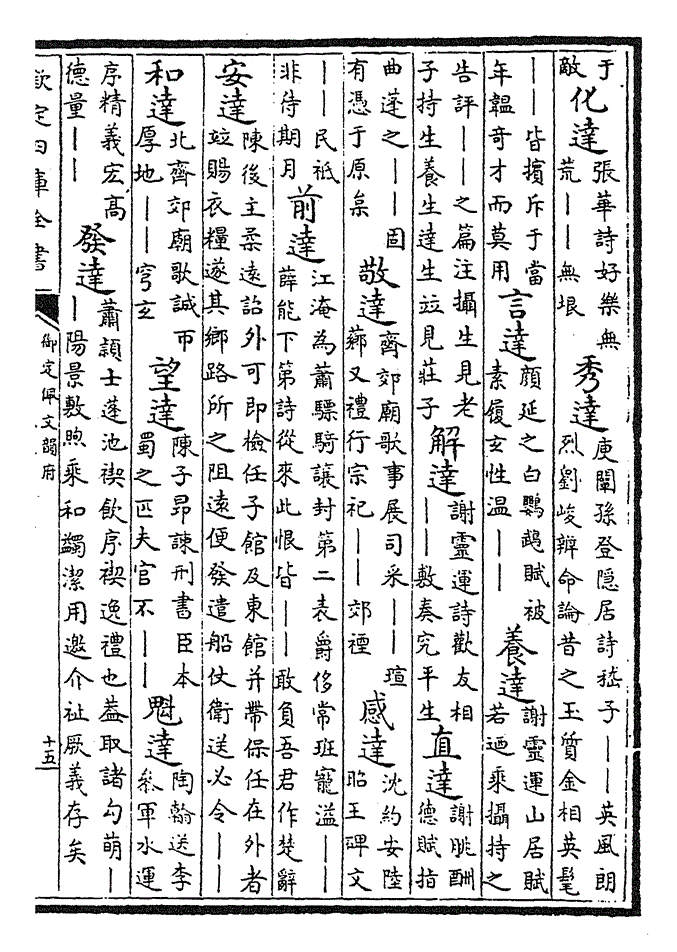 于
敵
化達
張華詩好樂無
荒——無垠
秀達
庾闡孫登隱居詩嵇子——英風朗
烈劉峻辨命論昔之玉質金相英髦
——皆擯斥于當
年韞奇才而莫用
言達
顔延之白鸚鵡賦被
素履玄性温——
養達
謝靈運山居賦
若迺乘攝持之
告評——之篇注攝生見老
子持生養生達生竝見莊子
解達
謝靈運詩歡友相
——敷奏究平生
直達
謝朓酬
德賦指
曲蓬之——固
有憑于原枲
敬達
齊郊廟歌事展司采——瑄
薌又禮行宗祀——郊禋
感達
沈約安陸
昭王碑文
——民祗
非待期月
前達
江淹為蕭驃騎讓封第二表爵侈常班寵溢——
薛能下第詩從來此恨皆——敢負吾君作楚辭
安達
陳後主柔遠詔外可即檢任子館及東館并帶保任在外者
竝賜衣糧遂其鄉路所之阻遠便發遣船仗衛送必令——
和達
北齊郊廟歌誠帀
厚地——穹玄
望達
陳子昂諫刑書臣本
蜀之匹夫官不——
魁達
陶翰送李
叅軍水運
序精義宏髙
德量——
發達
蕭頴士蓬池禊飲序禊逸禮也葢取諸勾萌—
—陽景敷煦乘和蠲潔用邀介祉厥義存矣
欽定四庫全書
御定佩文韻府
十五